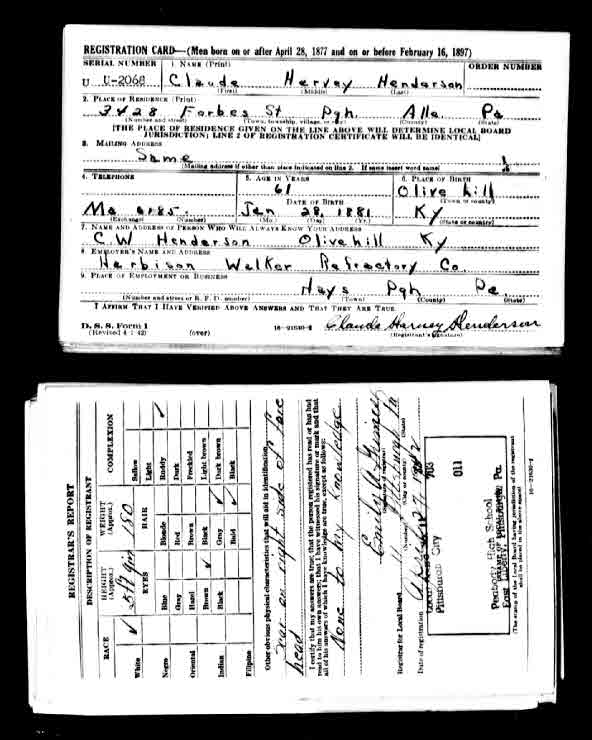 REGISTRATION CARD—(Men born on or after April 28, 1877 and on or before February 16, 1897)
SERIAL NUMBER 1. NAME (Print) ORDER NUMBER
U U-2068 Claude Hervey Henderson
(First) (Middle) (Last)
2. PLACE OF RESIDENCE (Print)
3428 Forbes St Pgh. Alle Pa
(Number and street) (Town, township, village, or city) (County) (State)
[THE PLACE OF RESIDENCE GIVEN ON THE LINE ABOVE WILL DETERMINE LOCAL BOARD
JURISDICTION; LINE 2 OF REGISTRATION CERTIFICATE WILL BE IDENTICAL]
3. MAILING ADDRESS
Same
[Mailing address if other than place indicated on line 2. If same insert word same]
4. TELEPHONE 5. AGE IN YEARS 6. PLACE OF BIRTH
61 Olive hill
DATE OF BIRTH (Town or county)
Ma 6185 Jan 28, 1881 Ky
(Exchange) (Number) (Mo.) (Day) (Yr.) (State or country)
7. NAME AND ADDRESS OF PERSON WHO WILL ALWAYS KNOW YOUR ADDRESS
C.W Henderson Olivehill Ky
8. EMPLOYER'S NAME AND ADDRESS
Herbison Walker Refractory Co.
9. PLACE OF EMPLOYMENT OR BUSINESS
Hays Pgh Pa
(Number and street or R. F. D. number) (Town) (County) (State)
I AFFIRM THAT I HAVE VERIFIED ABOVE ANSWERS AND THAT THEY ARE TRUE.
D. S. S. Form 1 Claude Harvey Henderson
(Revised 4-1-42) (over) 16—21630-2 (Registrant's signature)
REGISTRAR'S REPORT
DESCRIPTION OF REGISTRANT
RACE HEIGHT (Approx.) WEIGHT (Approx.) COMPLEXION
White ✓ 5 ft 9 in 180 Sallow
EYES HAIR Light
Negro Blue Blonde Ruddy ✓
Gray Red Dark
Oriental Hazel Brown Freckled
Brown ✓ Black Light brown
Indian Black Gray ✓ Dark brown
Bald Black
Filipino
Other obvious physical characteristics that will aid in identification
Scar on right side of face
head
I certify that my answers are true; that the person registered has read or has had
read to him his own answers; that I have witnessed his signature or mark and that
all of his answers of which I have knowledge are true, except as follows:
None to my knowledge
Emily
(Signature of registrar)
Registrar for Local Board
(Number) (City or county) (State)
Date of registration April 27 1942
Pittsburgh City
011
Peabody High School
East Liberty, Pa.
(The stamp of the Local Board having jurisdiction of the registrant
shall be placed in the above space)
16—21630-2